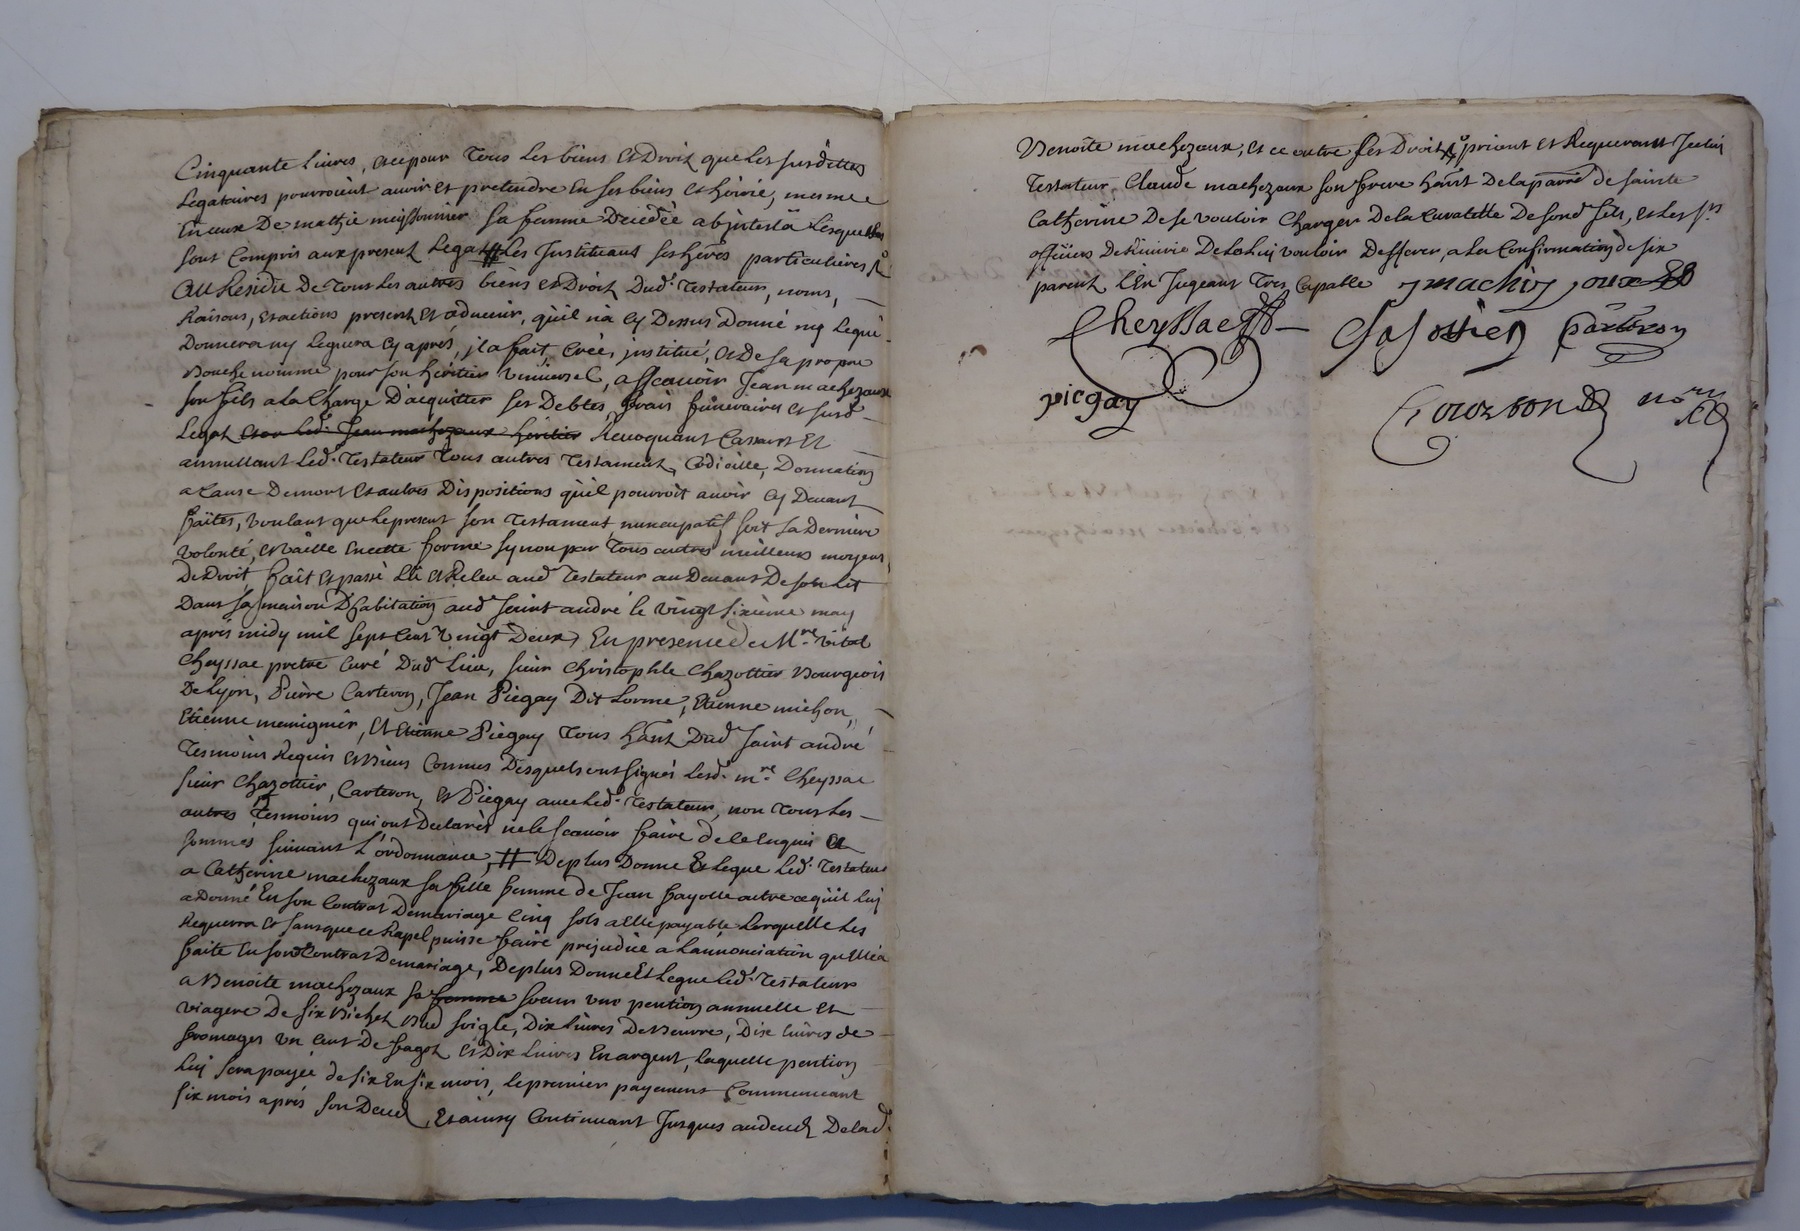 Cinquante livres, et ce pour tous les biens et droit que les susdittes
Legataires pourroient avoir et pretendre en ses biens et hoirie, mesme
En ceux de mathie meyssonnier sa femme decedée abjntesta lesquelles
sont Compris aux present Legat # Les Instituant ses hères particulières
Au Residu de tous les autres biens et Droit dud. Testateur, noms,
Raisons, et actions present et aduenir, qu'il na cy Dessus donné ny Legué
Donnera ny Leguera cy aprés, jl a fait, créé, institué, et de sa propre
Bouche nommé pour son héritier vniuersel, a scauoir Jean machezaux
son fils a la Charge D'acquitter ses Debtes, frais funeraires et susd.
Legat et ou led. Jean machezaux héritier Reuoquant Cassant et
annullant Led. Testateur tous autres Testament, Codicille, Donnation
a Cause Demort et autres Dispositions qu'il pourroit auoir cy Deuant
faites, voulant que le present son Testament nuncupatif soit sa Derniere
volonté, et vaille en cette forme synon par tous autres meilleurs moyens
De Droit, fait et passé Lû et Releu aud. Testateur au Deuant De son Lit
Dans sa maison D'habitation aud. saint andré le vingt sixième may
aprés midy mil sept cent vingt Deux, En presence de M.re vital
Cheyssac pretre Curé Dud. Lieu, sieur Christophle Chazottier Bourgeois
De Lyon, Pierre Carteron, Jean Piegay Dit Lorme, Etienne michon,
Etienne meunignier, et Etienne Piegay tous habt. Dud. saint andré
Tesmoins Requis et biens Connus Desquels ont signés lesd. m.re Cheyssac
sieur Chazottier, Carteron, et Piegay auec led. Testateur, non tous les
autres Tesmoins qui ont Declarés ne le scauoir faire de ce Enquis et
sommés suiuant L'ordonnance, # De plus Donne et legue Led. Testateur
a Catherine machezaux sa fille femme de Jean fayolle outre ce qu'il Luy
a Donné En son Contrat Demariage Cinq sols a Elle payable Lorquelle les
Requerra et sans que ce Rapel puisse faire prejudice a La Rénonciation qu'Ell'a
faite En sond. Contrat Demariage, De plus Donne Et legue led. Testateur
a Benoite machezaux sa femme soeur vne pention annuelle et
viagere De six Bichet Bled soigle, Dix liures De Beurre, Dix liures de
fromages vn Cent De fagot et Dix Liures En argent, laquelle pention
Luy sera payée de six En six mois, le premier payement Commencant
six mois aprés son Deced, Et ainsy Continuant Jusques au deced De lad.
Benoite machezaux, et ce outre ses Droits, priant et Requerant Jceluy
Testateur, Claude machezaux son frere habt. De la parre. de sainte
Catherine De se vouloir Charger De la Curatelle De sond. fils, et les srs.
officiers De Riuirie De la Luy vouloir Defferer a la Confirmation de six
parent L'En Jugeant Tres Capable J machizoux
Cheyssac Chasottier Carteron
piegay
Gourbon no.re